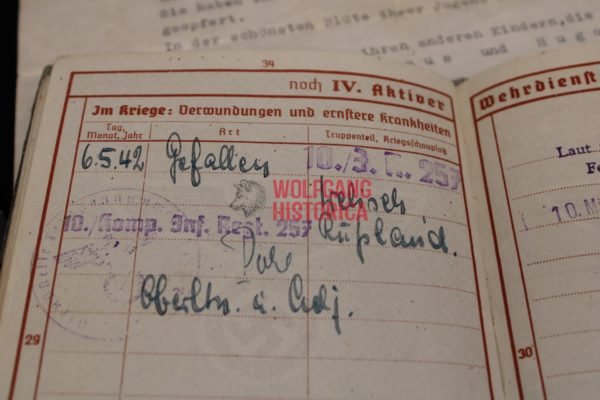 Sie haben
geopfert.
In der schönsten Blüte ihrer Jugend
ihren anderen Kindern, die
und Hug
34
noch IV. Aktiver
Im Kriege: Verwundungen und ernstere Krankheiten
Tag, Monat, Jahr Art Truppenteil, Kriegsschauplatz
6.5.42 Gefallen 10./J. R. 257
WOLFGANG
HISTORICA
10. Komp. Inf. Regt. 257 Rußland.
Oberltn. u. Adj.
29
Wehrdienst
Laut
10. M
30